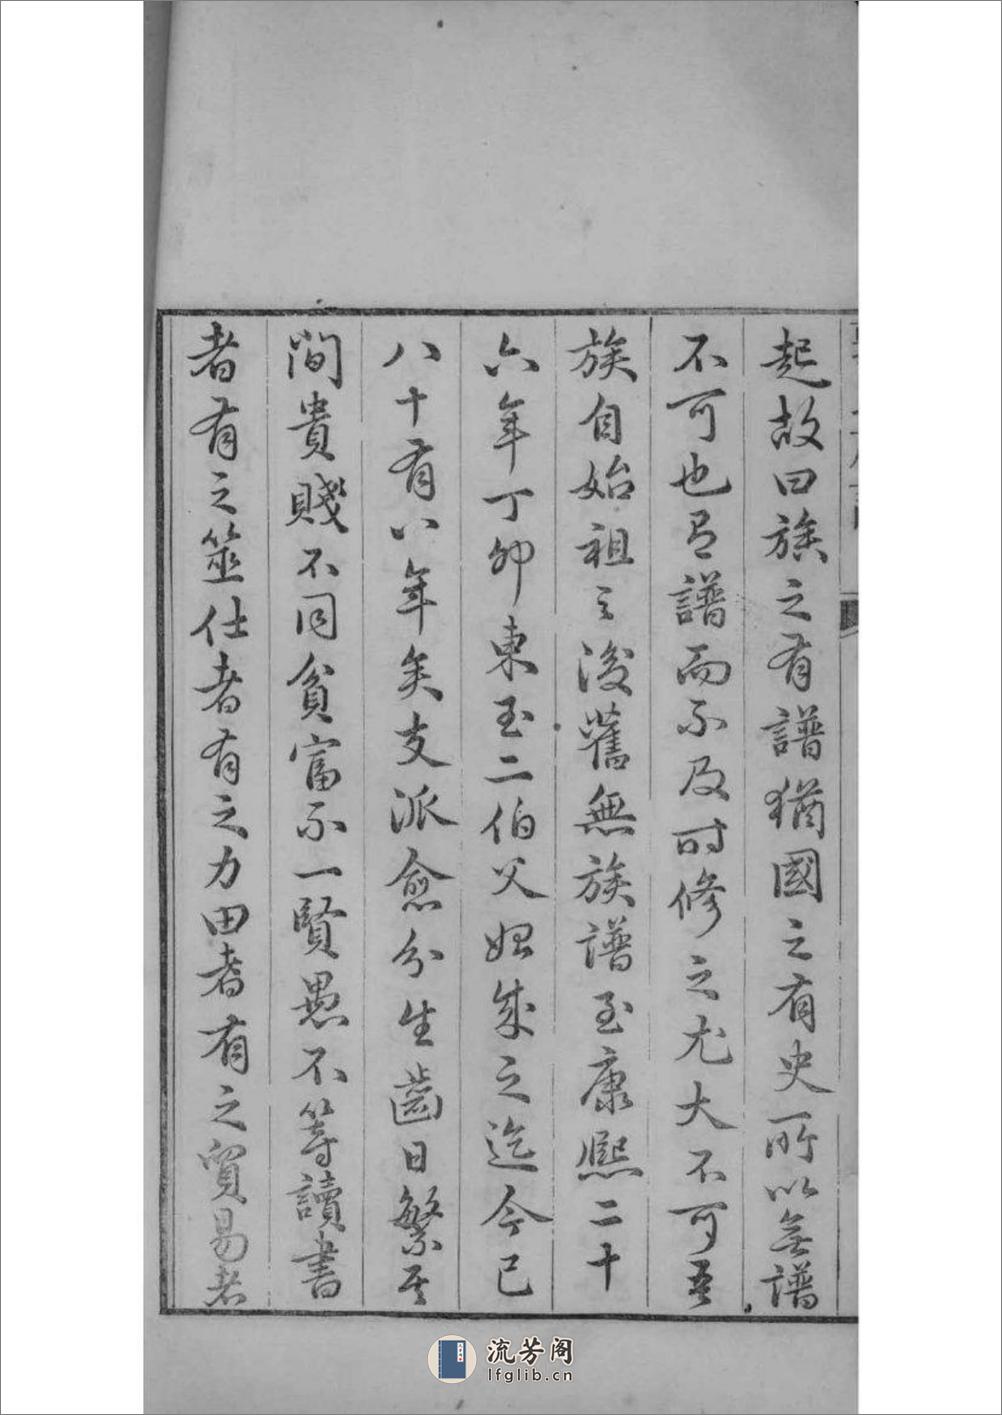 起故曰族之有譜猶國之有史所以無譜
不可也有譜而不及时修之尤大不可吾
族自始祖之後舊無族譜至康熙二十
六年丁卯東玉二伯父始成之迄今已
八十有八年矣支派愈分生齒日繁其
間貴賤不同貧富不一賢愚不等讀書
者有之筮仕者有之力田者有之貿易者
流芳阁
lfglib.cn